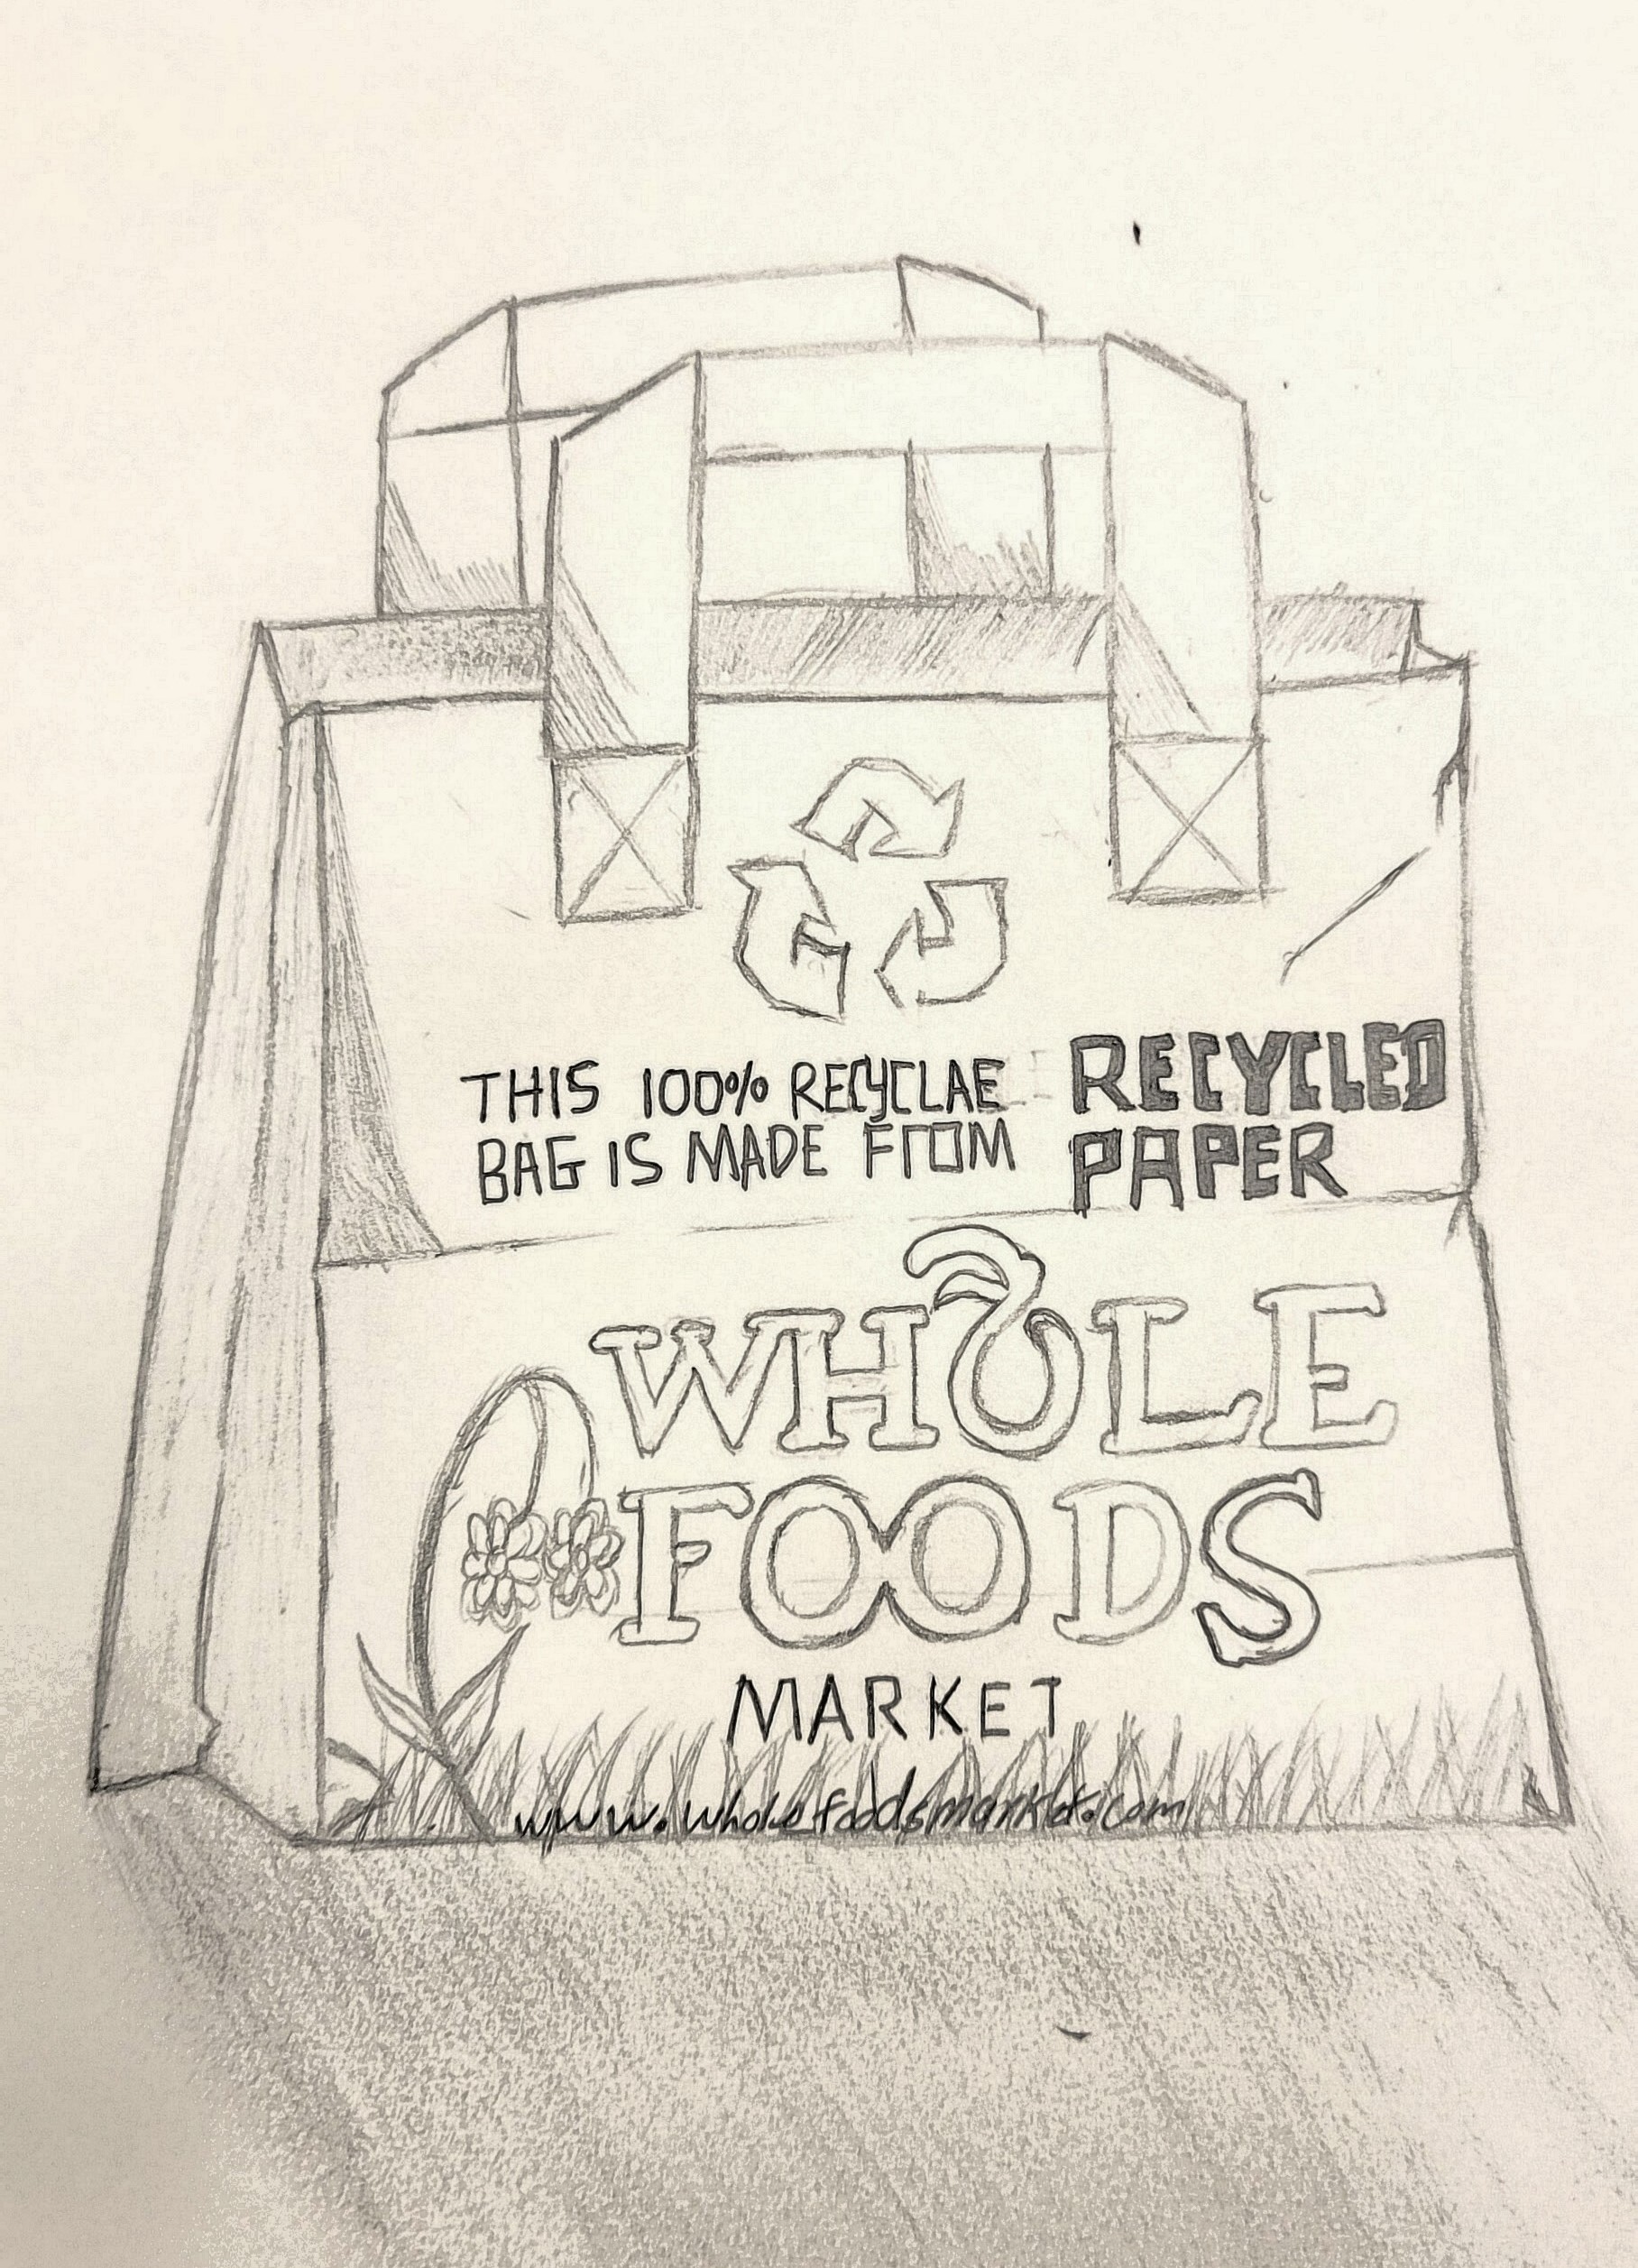 THIS 100% RECYCLAE
BAG IS MADE FROM
RECYCLED
PAPER
WHOLE
FOODS
MARKET
www.wholefoodsmarket.com